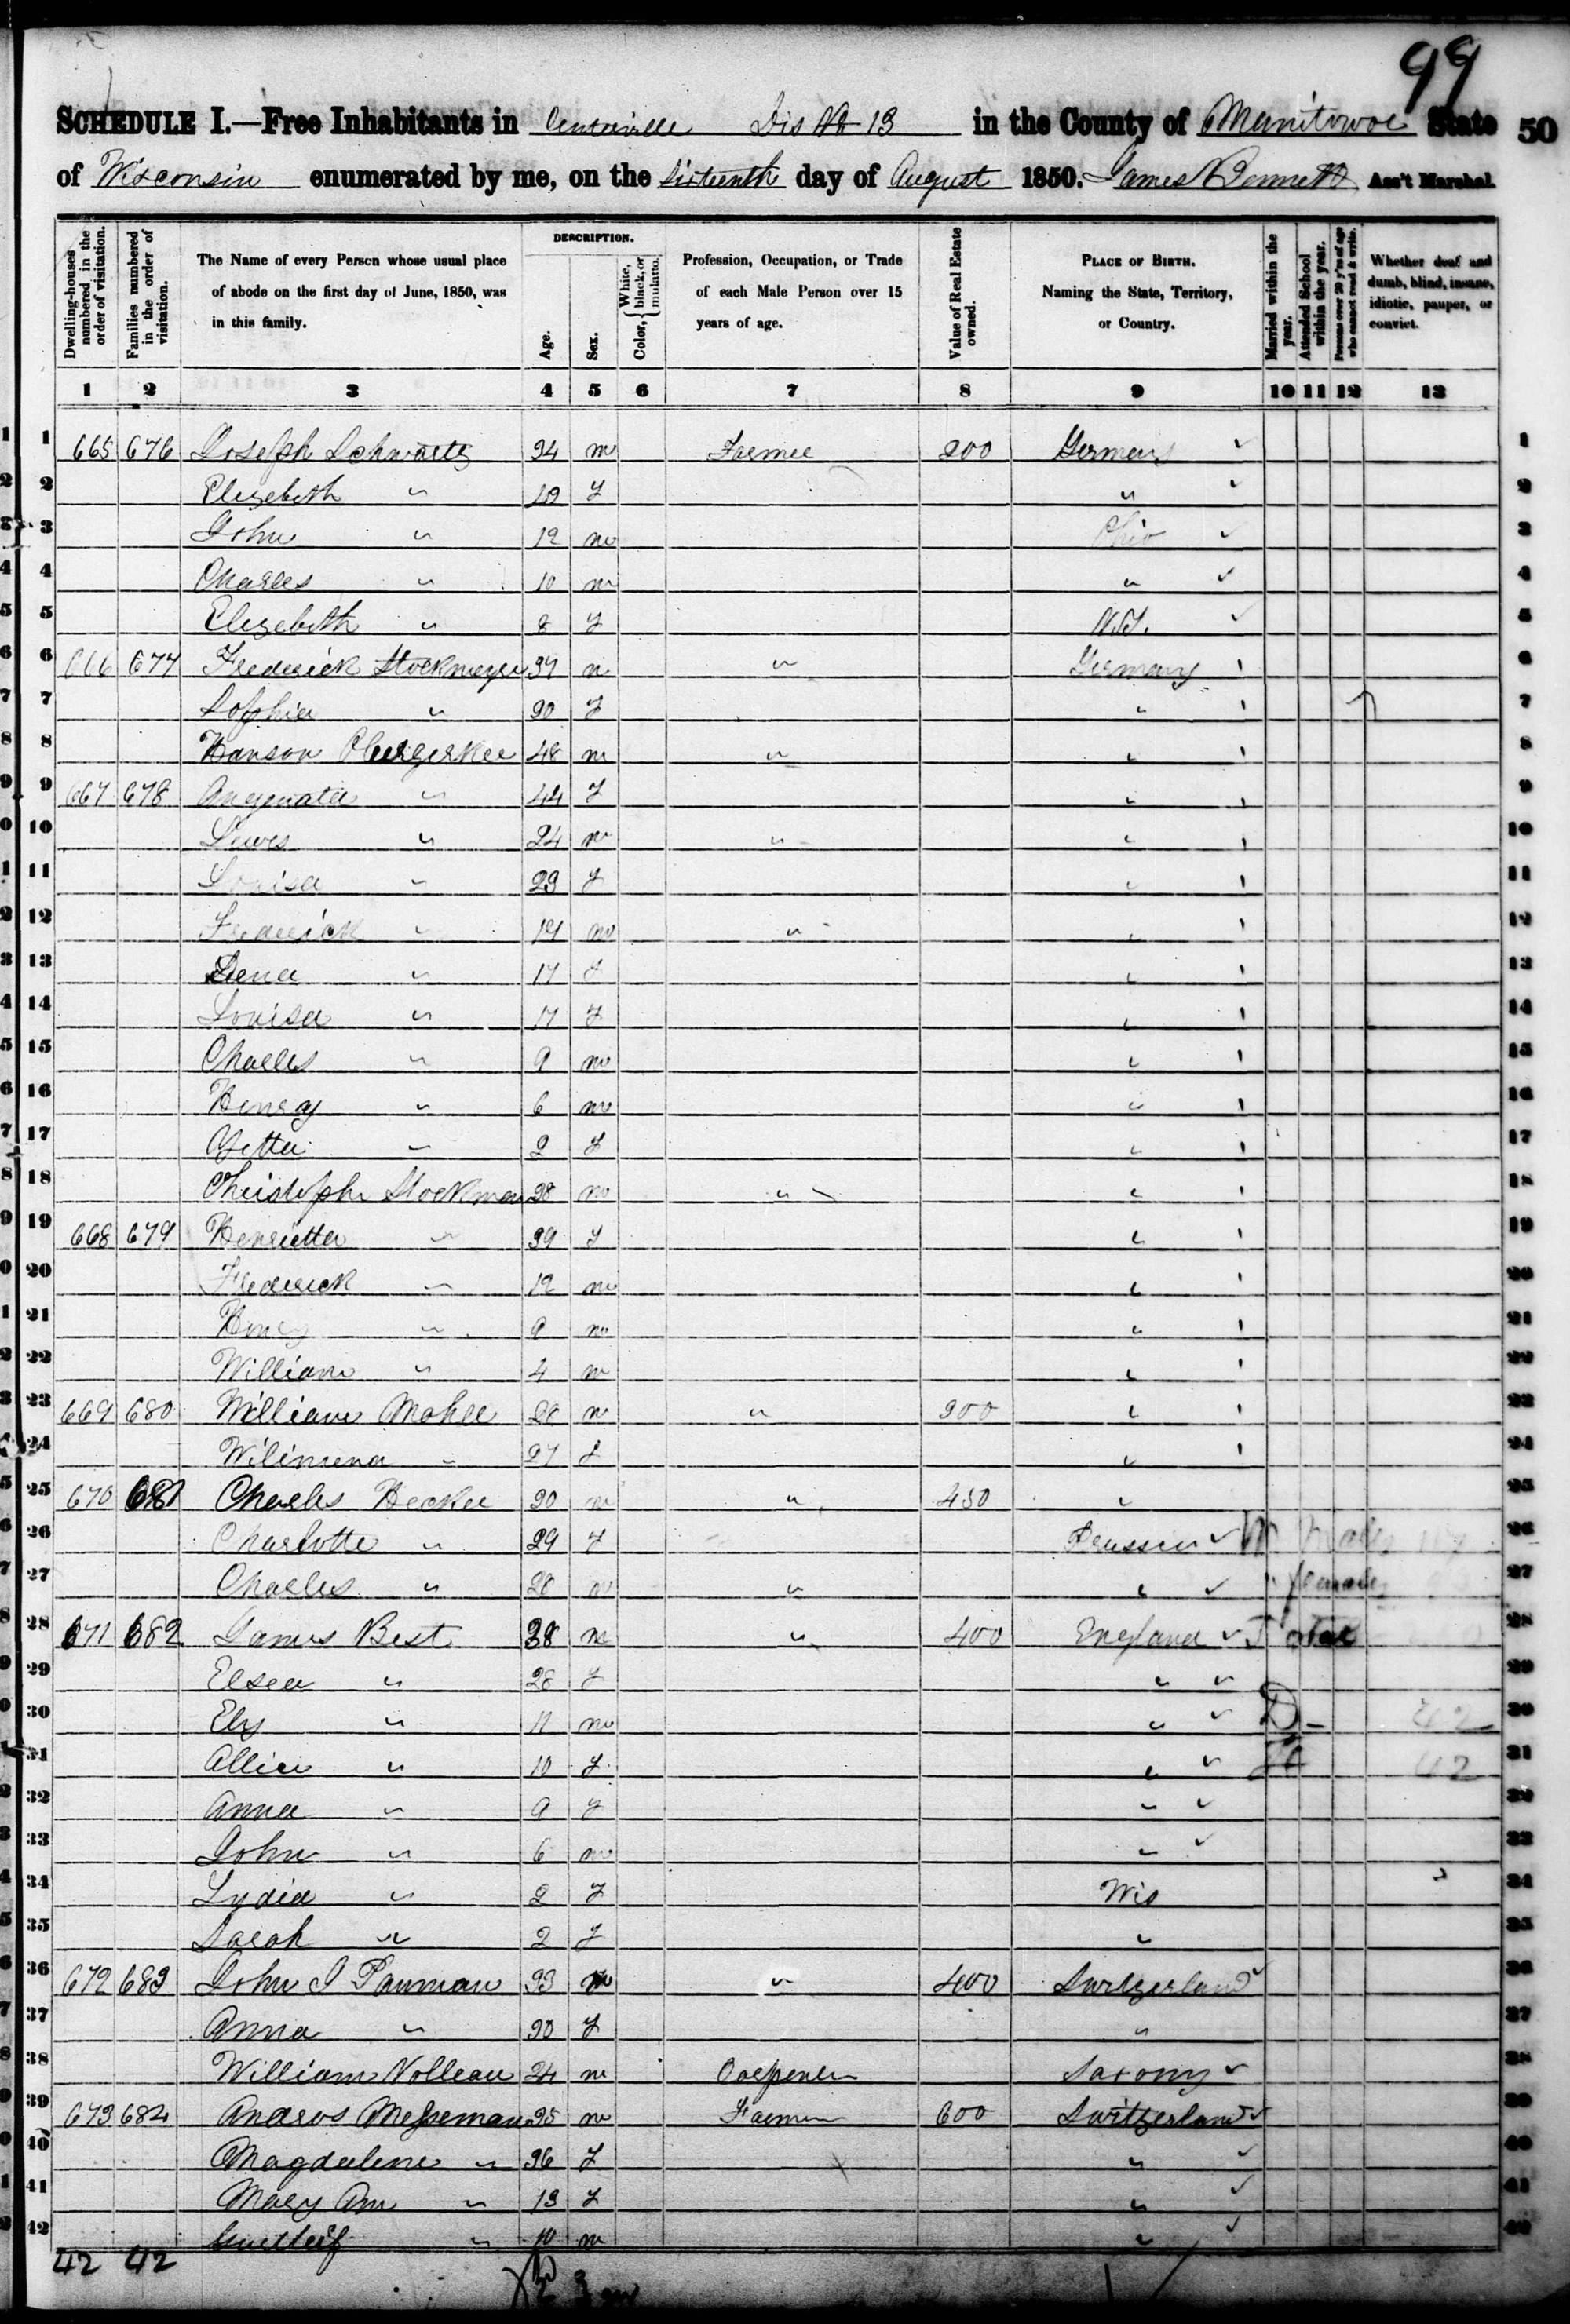 99
SCHEDULE I.—Free Inhabitants in Centerville Dis No 13 in the County of Manitowoc State 50
of Wisconsin enumerated by me, on the Sixteenth day of August 1850. James Bennett Ass't Marshal.
Dwelling-houses numbered in the order of visitation.
Families numbered in the order of visitation.
The Name of every Person whose usual place of abode on the first day of June, 1850, was in this family.
DESCRIPTION.
Age.
Sex.
Color, White, black, or mulatto.
Profession, Occupation, or Trade of each Male Person over 15 years of age.
Value of Real Estate owned.
PLACE OF BIRTH. Naming the State, Territory, or Country.
Married within the year.
Attended School within the year.
Persons over 20 y'rs of age who cannot read & write.
Whether deaf and dumb, blind, insane, idiotic, pauper, or convict.
1 2 3 4 5 6 7 8 9 10 11 12 13
1 665 676 Joseph Schwartz 34 m Farmer 200 Germany 1
2 Elizebeth " f " 2
3 John " 12 m Ohio 3
4 Charles " 10 m " 4
5 Elizebeth " 8 f 5
6 666 677 Frederick Stockmeyer 37 m " Germany 6
7 Sophia " 30 f " 7
8 Hanson 48 m " " 8
9 667 678 " 44 f " 9
10 Lewis " 24 m " " 10
11 Louisa " 23 f " 11
12 Frederick " 19 m " " 12
13 Lena " 17 f " 13
14 Louisa " 17 f " 14
15 Charles " 9 m " 15
16 Henry " 6 m " 16
17 Yetta " 2 f " 17
18 Christoph Stockman 38 m " " 18
19 668 679 Henrietta " 39 f " 19
20 Frederick " 12 m " 20
21 Henry " 9 m " 21
22 William " 4 m " 22
23 669 680 William m " 300 " 23
24 Wilimena " 27 f " 24
25 670 681 Charles Hecker 30 m " 450 " 25
26 Charlotte " 29 f Prussia 26
27 Charles " 28 m " " females 27
28 671 682 James Best 38 m " 400 England Total 28
29 " 28 f " 29
30 Ely " 11 m " D - 42 30
31 " 10 f " 42 31
32 Anna " 9 f " 32
33 John " 6 m " 33
34 Lydia " 2 f Wis 34
35 Sarah " 2 f " 35
36 672 683 John 33 m " 400 Switzerland 36
37 Anna " 30 f " 37
38 William 24 m Carpenter Saxony 38
39 673 684 Andros 35 m Farmer 600 Switzerland 39
40 Magdalene " 36 f " 40
41 Mary Ann " 13 f " 41
42 " 10 m " 42
42 42